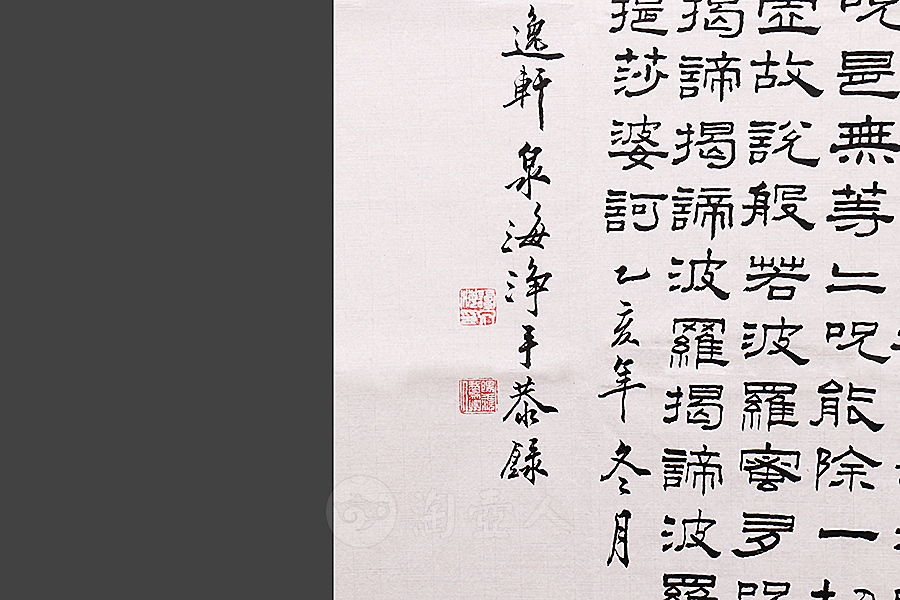 呪是無等二呪能除一切
虛故說般若波羅蜜多呪
揭諦揭諦波羅揭諦波羅
提莎婆訶乙亥年冬月
逸軒泉海淨手恭錄